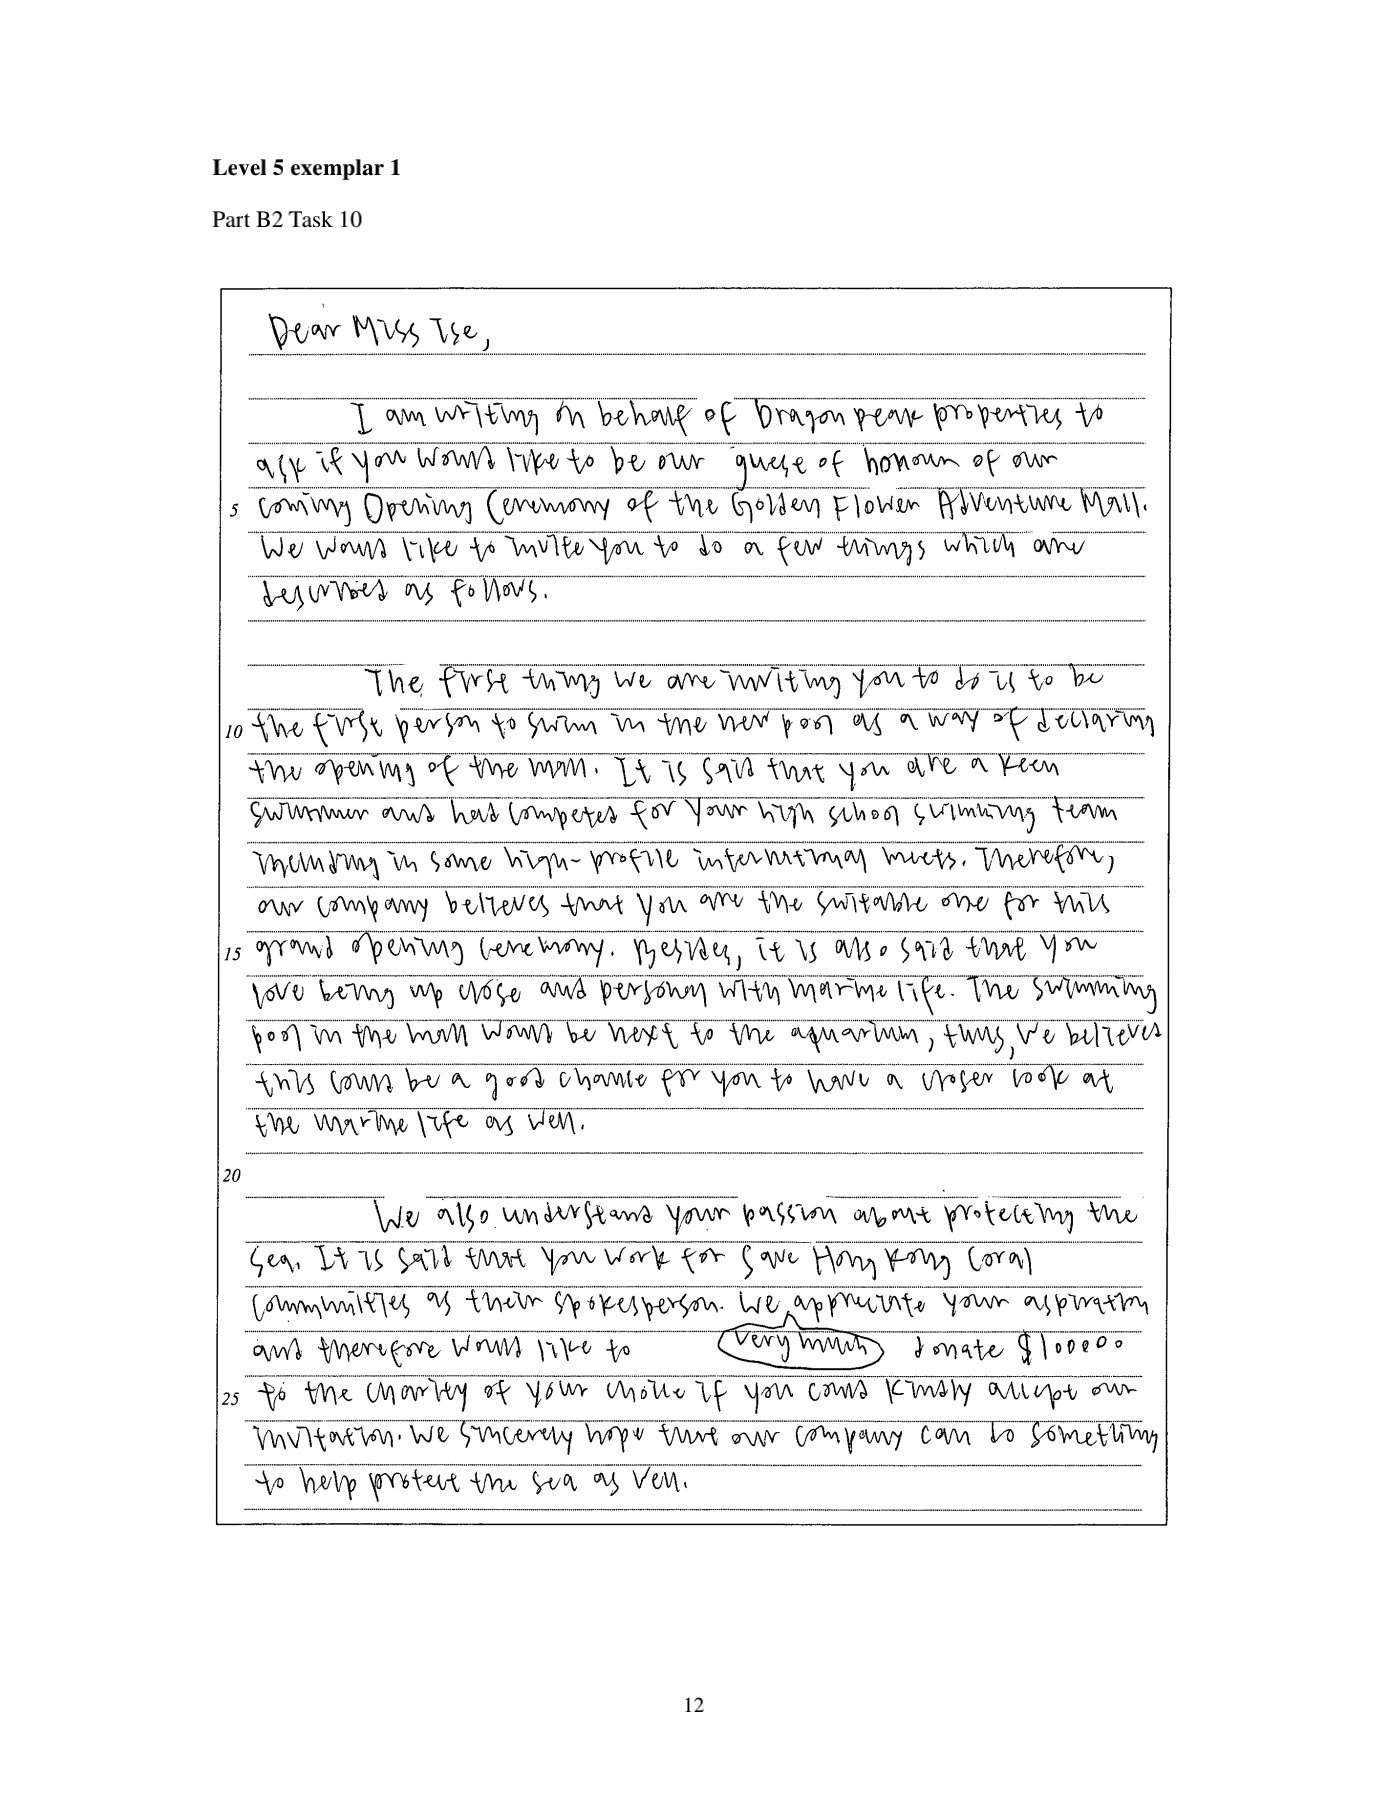 Level 5 exemplar 1
Part B2 Task 10
Dear Miss Tse,
I am writing on behalf of Dragon peak properties to
ask if you would like to be our guest of honour of our
5 coming Opening Ceremony of the Golden Flower Adventure Mall.
We would like to invite you to do a few things which are
described as follows.
The first thing we are inviting you to do is to be
10 the first person to swim in the new pool as a way of declaring
the opening of the mall. It is said that you are a keen
swimmer and had competed for your high school swimming team
including in some high-profile international meets. Therefore,
our company believes that you are the suitable one for this
15 grand opening ceremony. Besides, it is also said that you
love being up close and personal with marine life. The swimming
pool in the mall would be next to the aquarium, thus, we believes
this could be a good chance for you to have a closer look at
the marine life as well.
20
We also understand your passion about protecting the
sea. It is said that you work for Save Hong Kong Coral
Communities as their spokesperson. We appreciate your aspiration
and therefore would like to very much donate $100000
25 to the charity of your choice if you could kindly accept our
invitation. We sincerely hope that our company can do something
to help protect the sea as well.
12